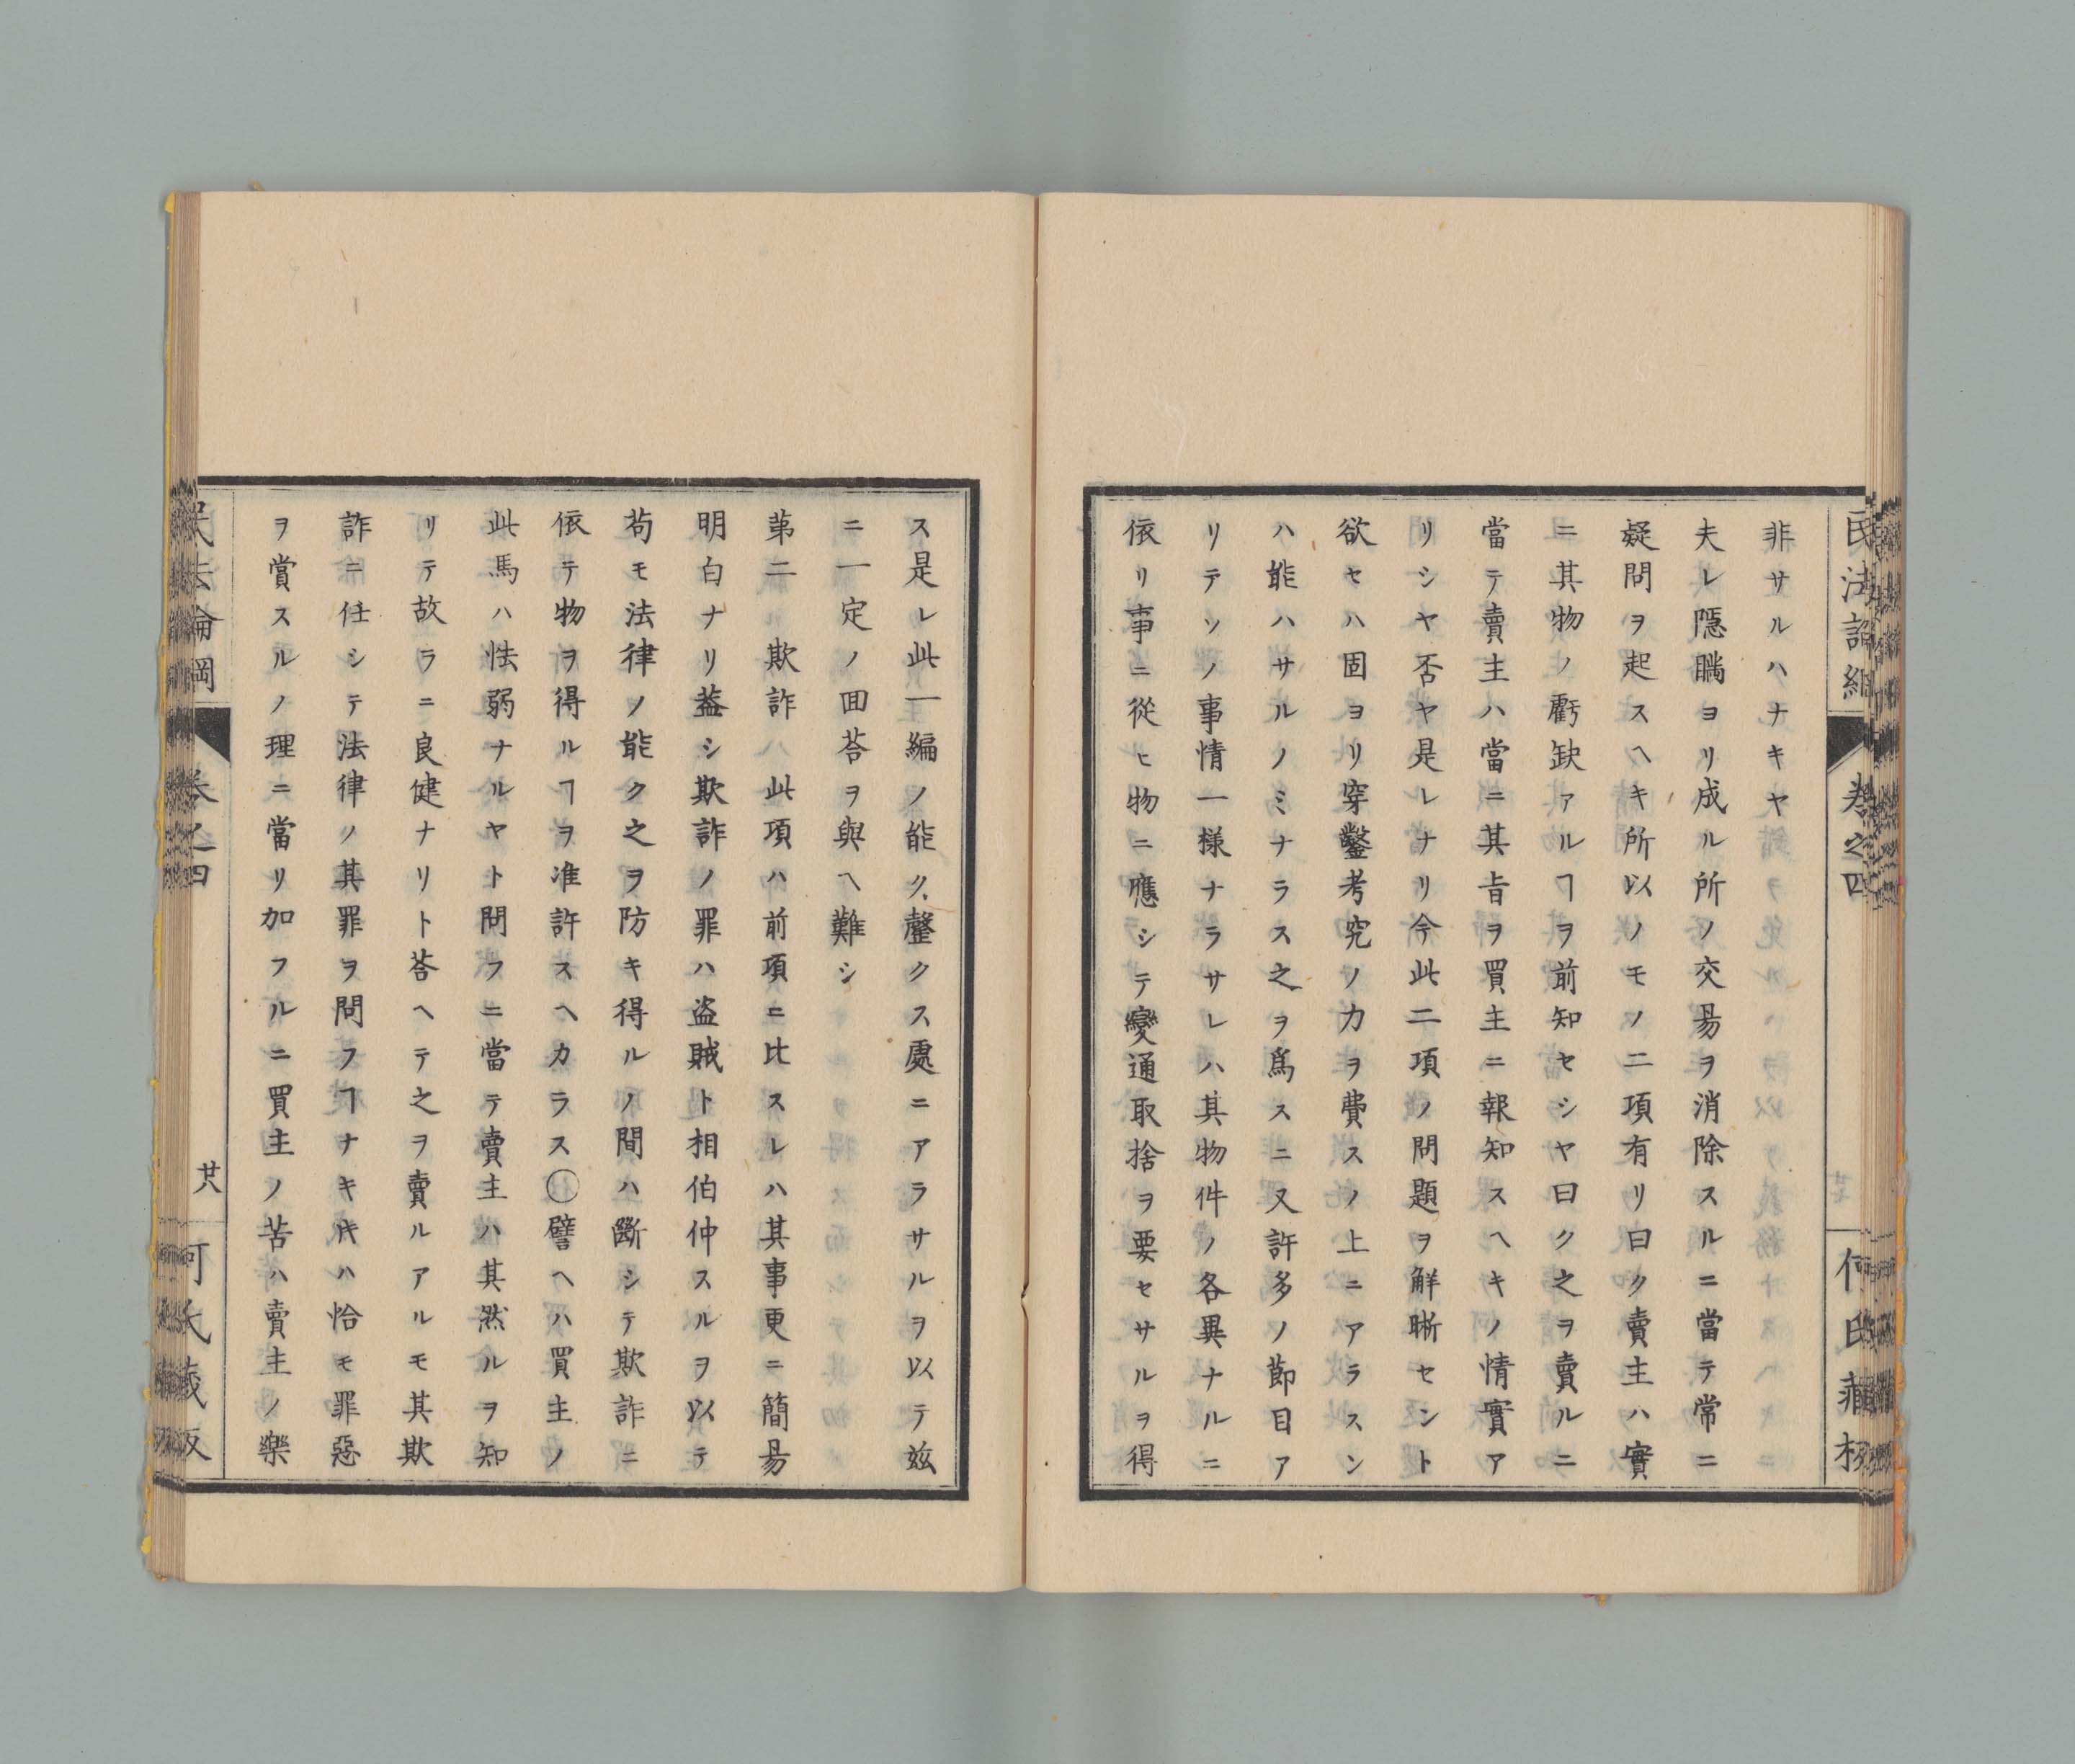 民法論綱 卷之四 何氏藏板
非サルハナキヤ
夫レ隱瞞ヨリ成ル所ノ交昜ヲ消除スルニ當テ常ニ
疑問ヲ起スヘキ所以ノモノ二項有リ曰ク賣主ハ實
ニ其物ノ虧缺アルヿヲ前知セシヤ曰ク之ヲ賣ルニ
當テ賣主ハ當ニ其旨ヲ買主ニ報知スヘキノ情實ア
リシヤ否ヤ是レナリ今此二項ノ問題ヲ鮮晰セント
欲セハ固ヨリ穿鑿考究ノ力ヲ費スノ上ニアラスン
ハ能ハサルノミナラス之ヲ爲スニ又許多ノ節目ア
リテソノ事情一樣ナラサレハ其物件ノ各異ナルニ
依リ事ニ從ヒ物ニ應シテ變通取捨ヲ要セサルヲ得
ス是レ此一編ノ能ク罄クス處ニアラサルヲ以テ玆
ニ一定ノ囬荅ヲ與ヘ難シ
苐二 欺詐 此項ハ前項ニ比スレハ其事更ニ簡昜
明白ナリ葢シ欺詐ノ罪ハ盗賊ト相伯仲スルヲ以テ
苟モ法律ノ能ク之ヲ防キ得ルノ間ハ斷シテ欺詐ニ
依テ物ヲ得ルヿヲ准許スヘカラス○譬ヘハ買主ノ
此馬ハ怯弱ナルヤト問フニ當テ賣主ハ其然ルヲ知
リテ故ラニ良健ナリト荅ヘテ之ヲ賣ルアルモ其欺
詐ニ任シテ法律ノ其罪ヲ問フヿナキキハ恰モ罪惡
ヲ賞スルノ理ニ當リ加フルニ買主ノ苦ハ賣主ノ樂
民法論綱 卷之四 廿八 何氏藏板